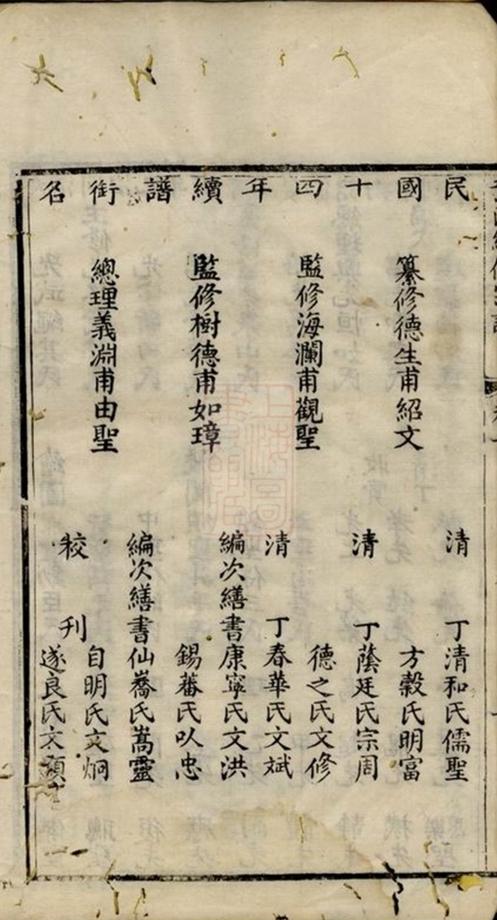 民國十四年續譜銜名
纂修德生甫紹文
監修海瀾甫觀聖
監修樹德甫如璋
總理義淵甫由聖
清丁清和氏儒聖
方穀氏明富
清丁蔭廷氏宗周
德之氏文修
清丁春華氏文斌
編次繕書康寧氏文洪
錫蕃氏以忠
編次繕書仙蕎氏嵩靈
校刊
自明氏文炯
遂良氏文